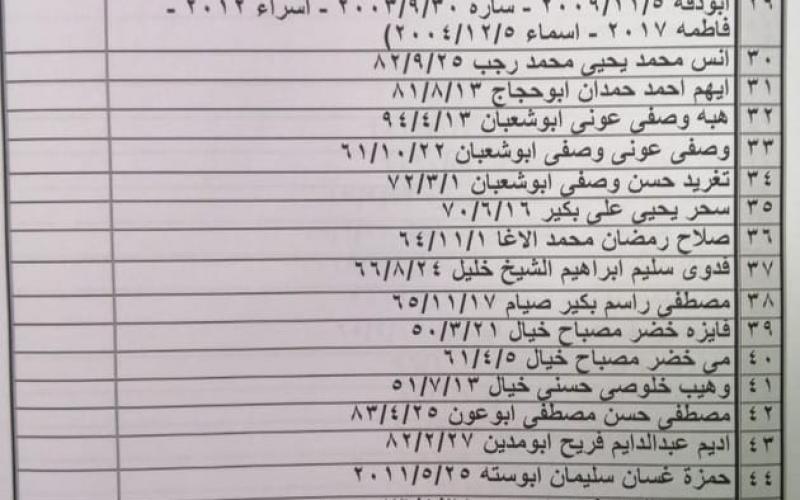 ٢٩ ابودقه ٢٠٠٩/١١/٥ - ساره ٢٠٠٣/٩/٣٠ - اسراء ٢٠١٢ -
فاطمه ٢٠١٧ - اسماء ٢٠٠٤/١٢/٥)
٣٠ انس محمد يحيى محمد رجب ٨٢/٩/٢٥
٣١ ايهم احمد حمدان ابوحجاج ٨١/٨/١٣
٣٢ هبه وصفى عونى ابوشعبان ٩٤/٤/١٣
٣٣ وصفى عونى وصفى ابوشعبان ٦١/١٠/٢٢
٣٤ تغريد حسن وصفى ابوشعبان ٧٢/٣/١
٣٥ سحر يحيى على بكير ٧٠/٦/١٦
٣٦ صلاح رمضان محمد الاغا ٦٤/١١/١
٣٧ فدوى سليم ابراهيم الشيخ خليل ٦٦/٨/٢٤
٣٨ مصطفى راسم بكير صيام ٦٥/١١/١٧
٣٩ فايزه خضر مصباح خيال ٥٠/٣/٢١
٤٠ مى خضر مصباح خيال ٦١/٤/٥
٤١ وهيب خلوصى حسنى خيال ٥١/٧/١٣
٤٢ مصطفى حسن مصطفى ابوعون ٨٣/٤/٢٥
٤٣ اديم عبدالدايم فريح ابومدين ٨٢/٢/٢٧
٤٤ حمزة غسان سليمان ابوسته ٢٠١١/٥/٢٥